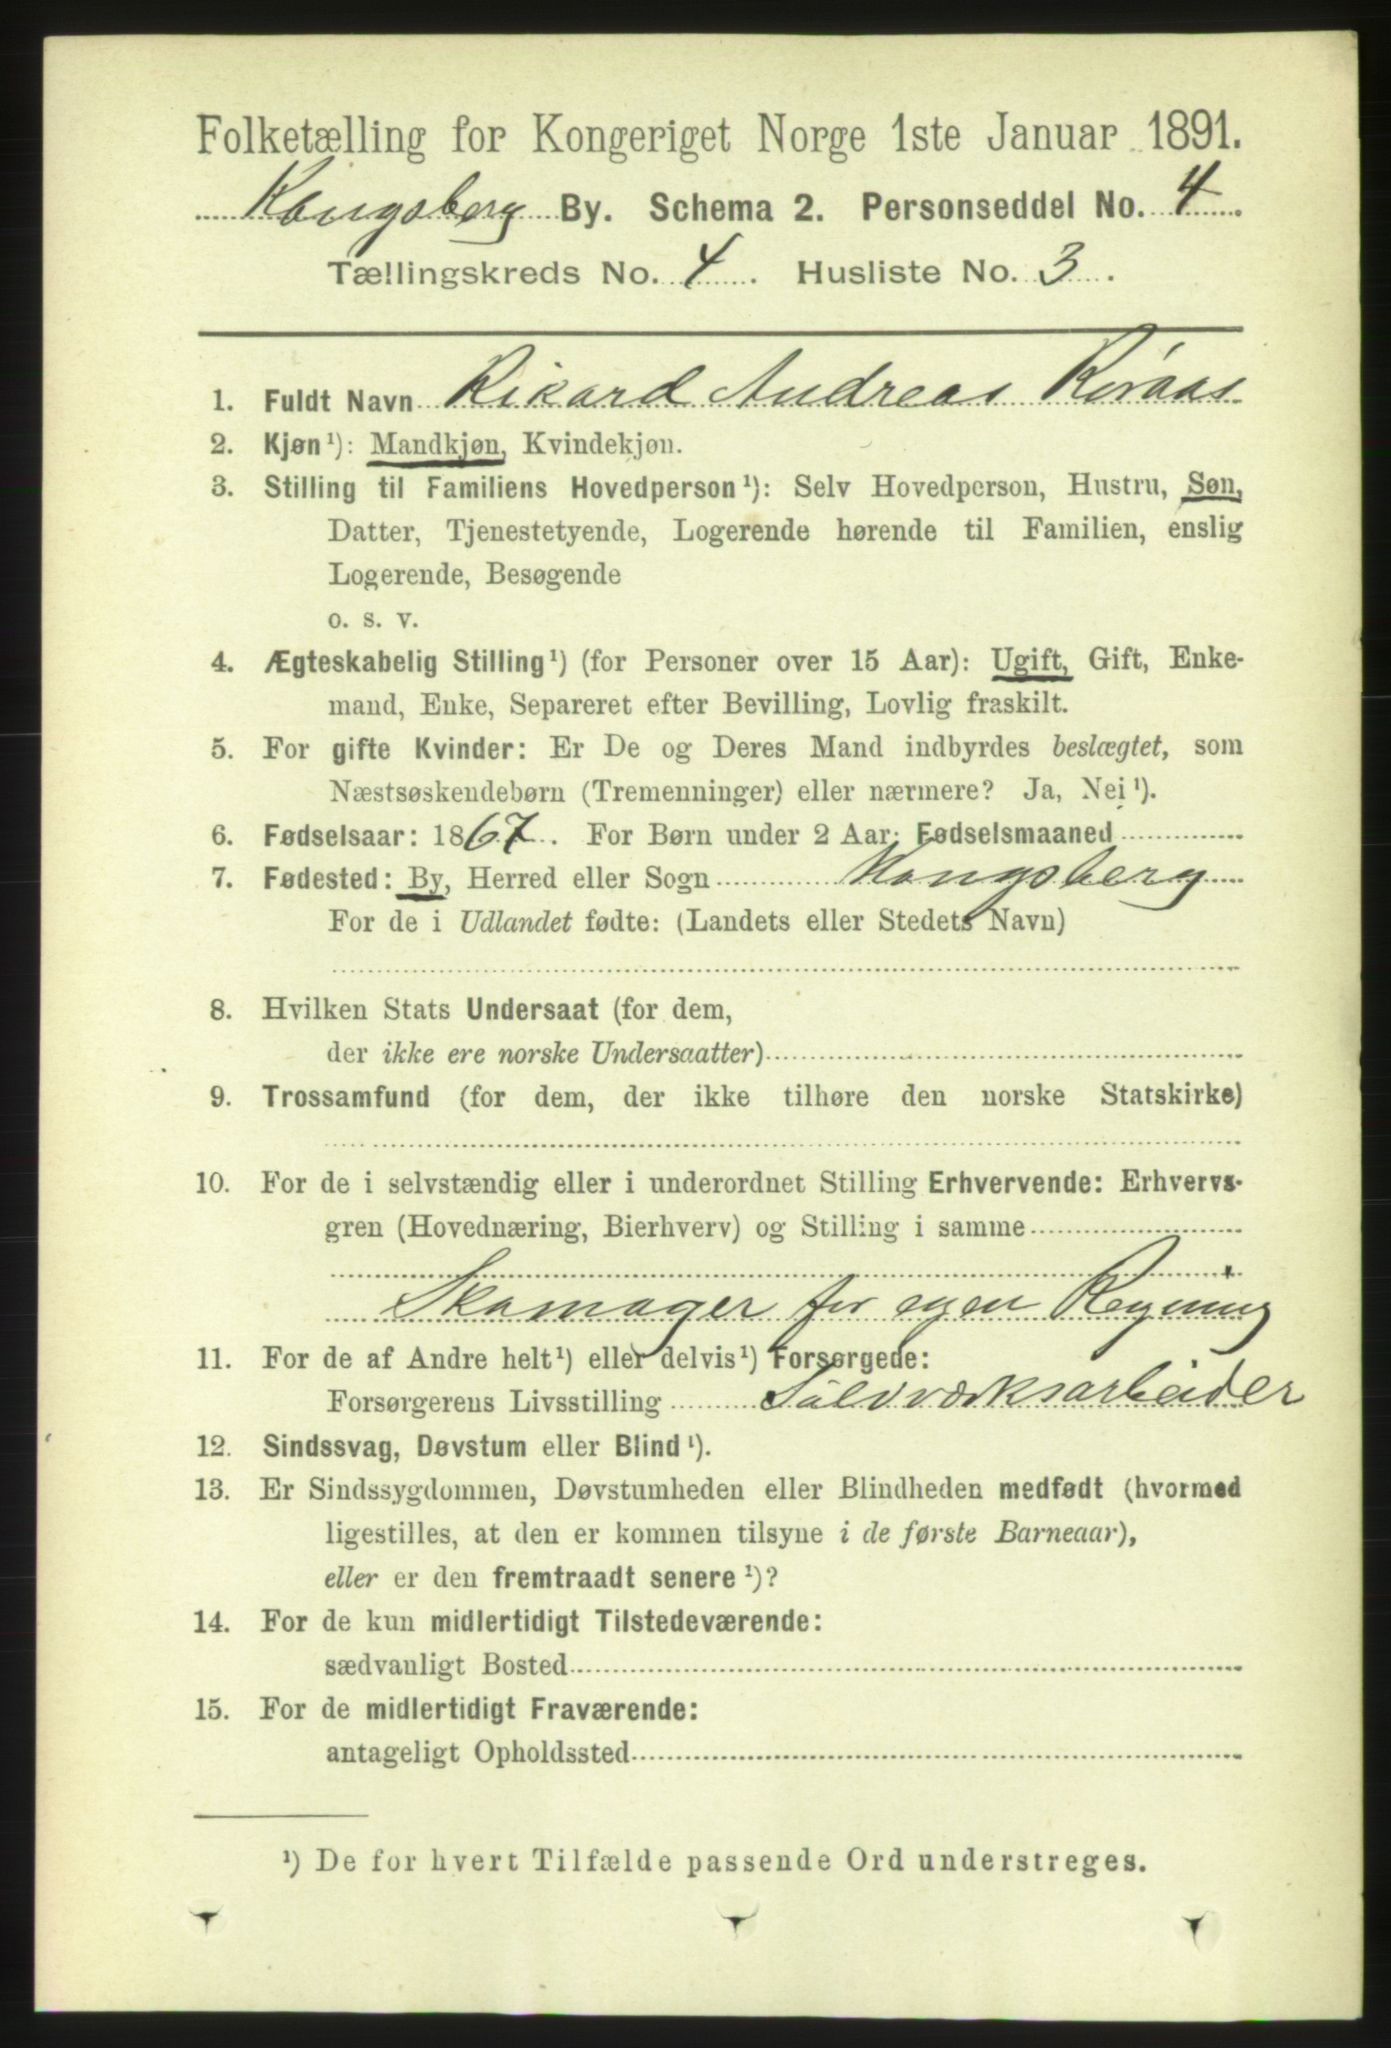 Folketælling for Kongeriget Norge 1ste Januar 1891.
Kongsberg By. Schema 2. Personseddel No. 4
Tællingskreds No. 4. Husliste No. 3.
1. Fuldt Navn Rikard Andreas Koraas
2. Kjøn¹): Mandkjøn, Kvindekjøn.
3. Stilling til Familiens Hovedperson¹): Selv Hovedperson, Hustru, Søn,
Datter, Tjenestetyende, Logerende hørende til Familien, enslig
Logerende, Besøgende
o. s. v.
4. Ægteskabelig Stilling¹) (for Personer over 15 Aar): Ugift, Gift, Enke-
mand, Enke, Separeret efter Bevilling, Lovlig fraskilt.
5. For gifte Kvinder: Er De og Deres Mand indbyrdes beslægtet, som
Næstsøskendebørn (Tremenninger) eller nærmere? Ja, Nei¹).
6. Fødselsaar: 1867. For Børn under 2 Aar: Fødselsmaaned
7. Fødested: By, Herred eller Sogn Kongsberg
For de i Udlandet fødte: (Landets eller Stedets Navn)
8. Hvilken Stats Undersaat (for dem,
der ikke ere norske Undersaatter)
9. Trossamfund (for dem, der ikke tilhøre den norske Statskirke)
10. For de i selvstændig eller i underordnet Stilling Erhvervende: Erhvervs-
gren (Hovednæring, Bierhverv) og Stilling i samme
Skomager for egen Regning
11. For de af Andre helt¹) eller delvis¹) Forsørgede:
Forsørgerens Livsstilling Sølvværksarbeider
12. Sindssvag, Døvstum eller Blind¹).
13. Er Sindssygdommen, Døvstumheden eller Blindheden medfødt (hvormed
ligestilles, at den er kommen tilsyne i de første Barneaar),
eller er den fremtraadt senere¹)?
14. For de kun midlertidigt Tilstedeværende:
sædvanligt Bosted
15. For de midlertidigt Fraværende:
antageligt Opholdssted
¹) De for hvert Tilfælde passende Ord understreges.